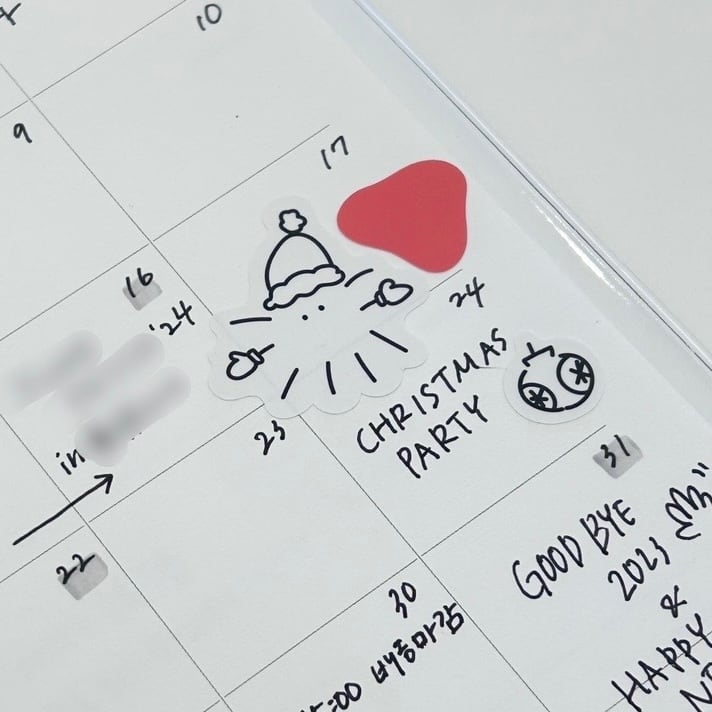 10
9
17
16
'24
24
CHRISTMAS
PARTY
in
23
31
GOOD BYE
2023
&
HAPPY
22
30
:00